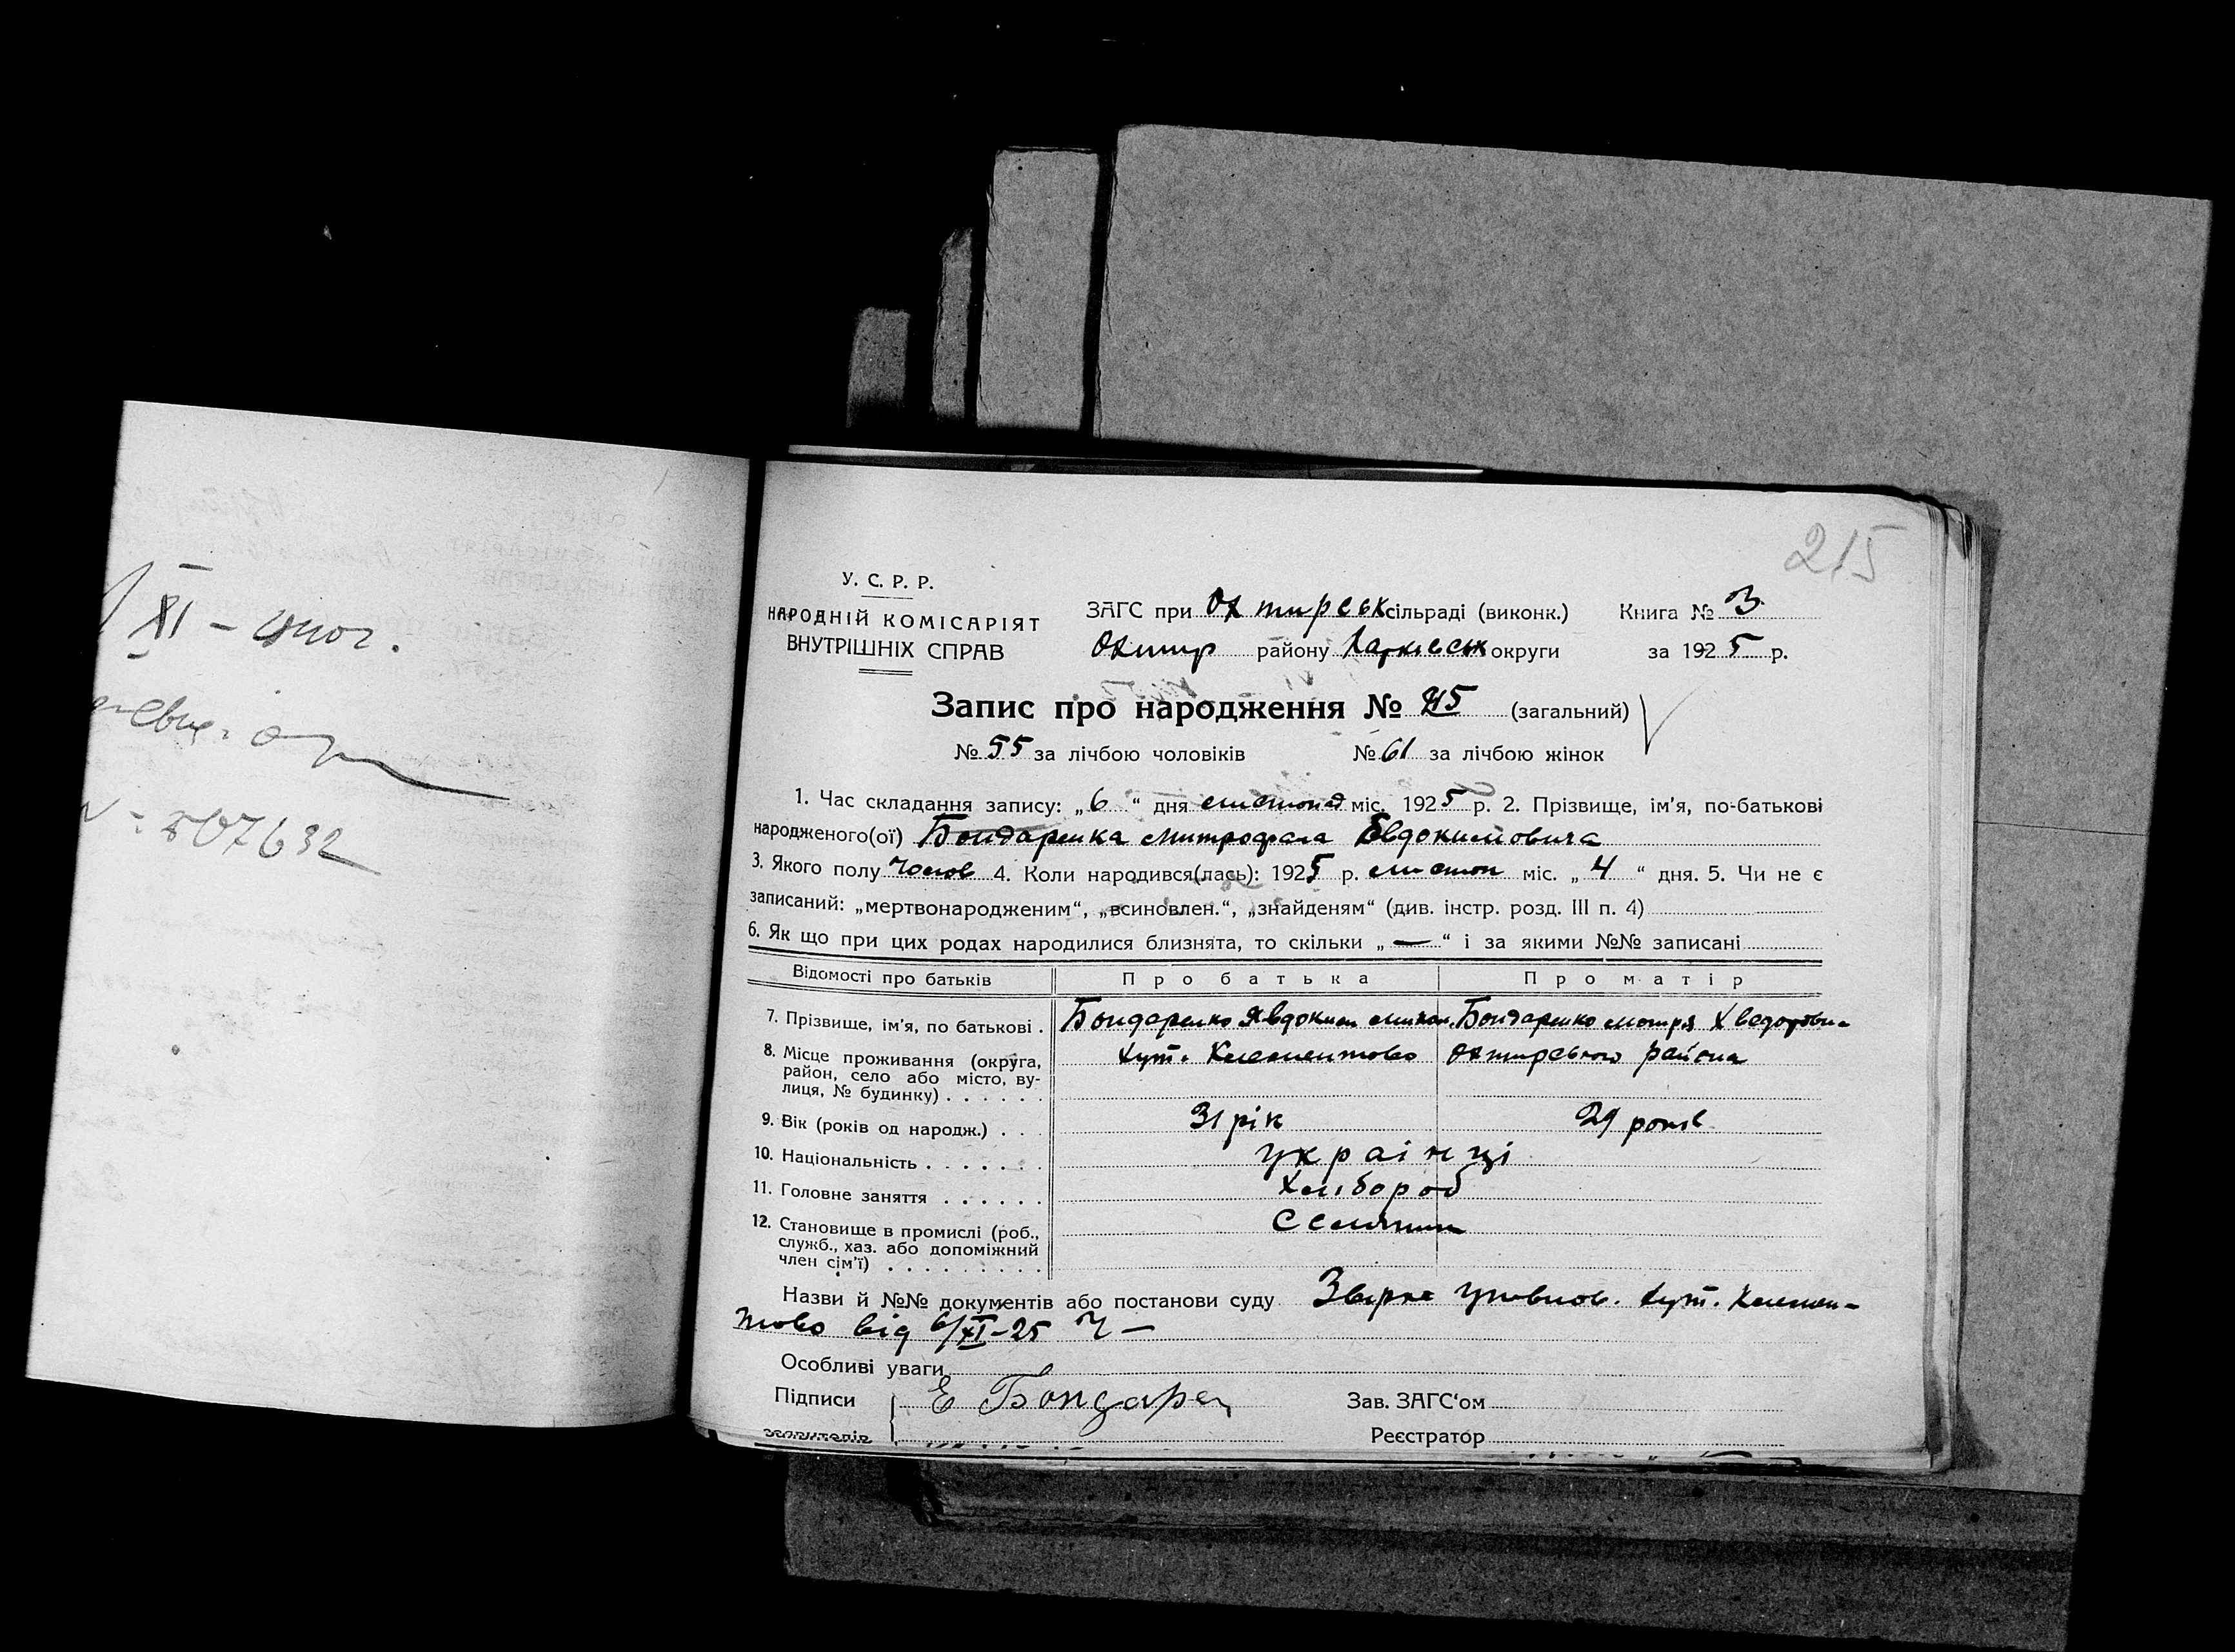 XI –
507632
215
У. С. Р. Р.
НАРОДНІЙ КОМІСАРІЯТ
ВНУТРІШНІХ СПРАВ
ЗАГС при Охтирськ сільраді (виконк.) Книга № 3
Охтир району Харківськ округи за 1925 р.
Запис про народження № (загальний)
№ 55 за лічбою чоловіків № 61 за лічбою жінок
1. Час складання запису: „6“ дня листопад міс. 1925 р. 2. Прізвище, ім'я, по-батькові
народженого(ої) Бондаренка Митрофана Євдокимовича
3. Якого полу Чолов 4. Коли народився(лась): 1925 р. листоп міс. „4“ дня. 5. Чи не є
записаний: „мертвонародженим“, „всиновлен.“, „знайденям“ (див. інстр. розд. III п. 4)
6. Як що при цих родах народилися близнята, то скільки „—“ і за якими №№ записані
Відомості про батьків Про батька Про матір
7. Прізвище, ім'я, по батькові . Бондаренко Явдоким Михай. Бондаренко Мотря Хведоровна
8. Місце проживання (округа, район, село або місто, ву-
лиця, № будинку) . . . . . . хут. Клементово Охтирського района
9. Вік (років од народж.) . . . 31 рік 29 років
10. Національність . . . . . . . українці
11. Головне заняття . . . . . . Хлібороб
12. Становище в промислі (роб.,
служб., хаз. або допоміжний
член сім'ї) . . . . . . . . .
Назви й №№ документів або постанови суду хут. Клемен-
тово від 6/XI–25
Особливі уваги
Підписи Е Бондарен Зав. ЗАГС'ом
Реєстратор